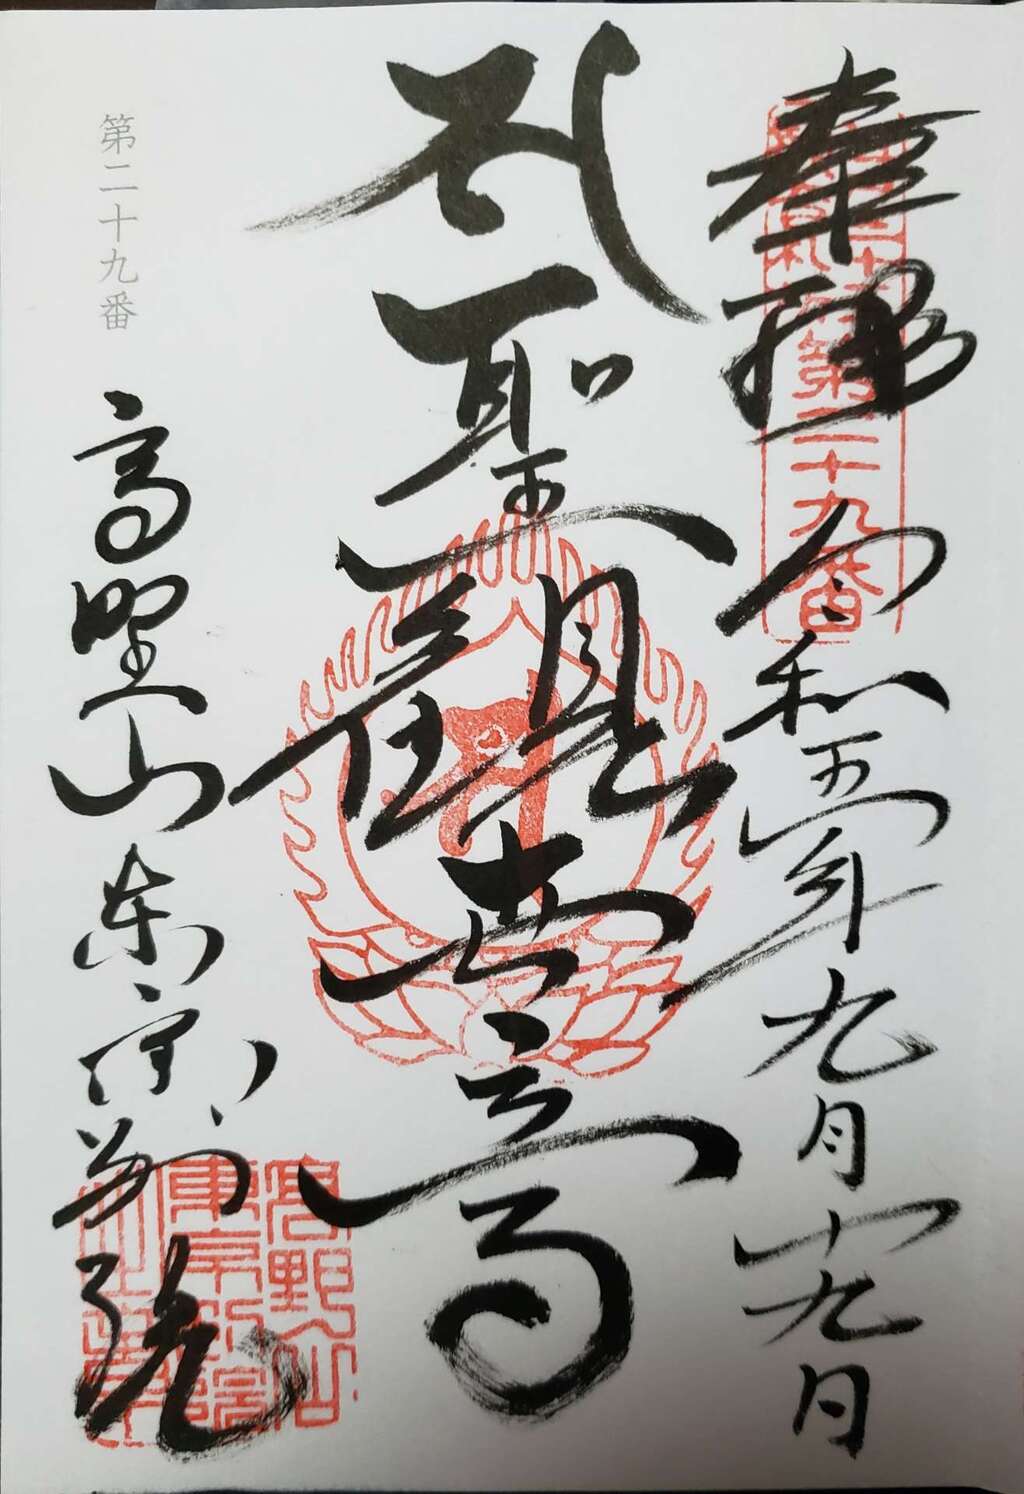 奉拝 令和五年九月十九日
第二十九番
聖観世音
第二十九番
高野山東京別院
高野山
東京別院